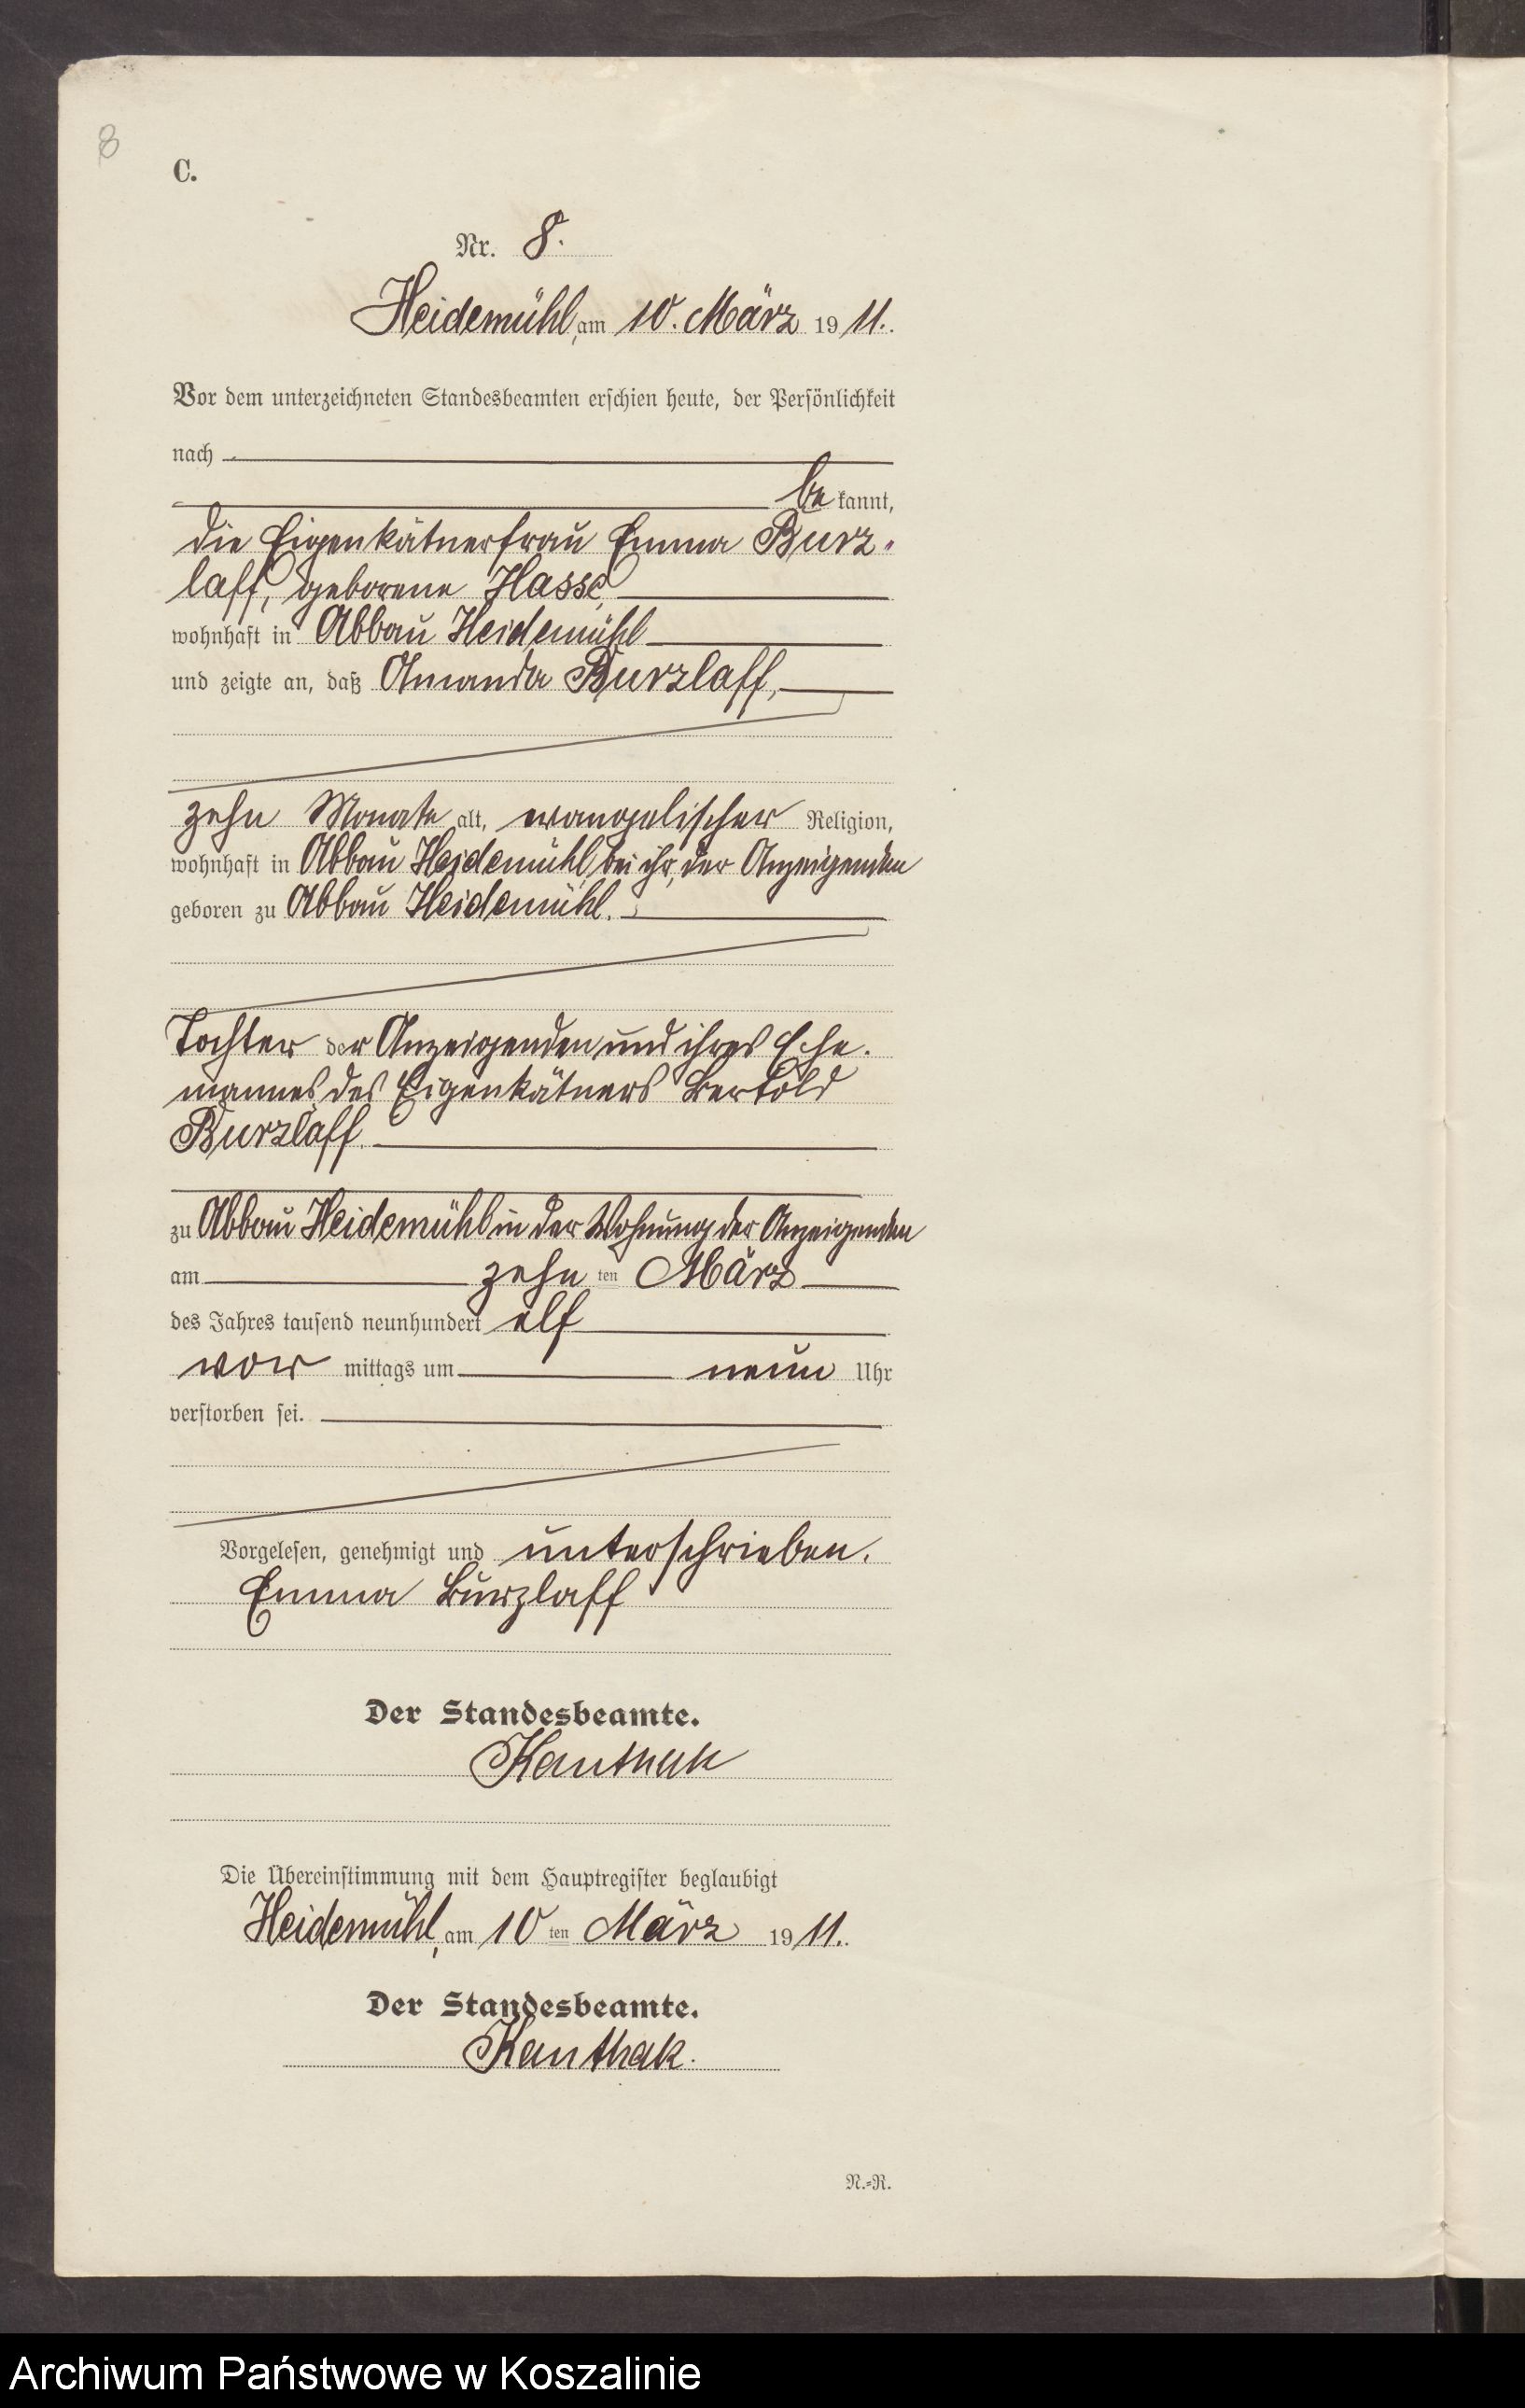 8
C.
Nr. 8.
Heidemühl, am 10. März 1911.
Vor dem unterzeichneten Standesbeamten erschien heute, der Persönlichkeit
nach
be kannt,
die Eigenkätnerfrau Emma Burz-
laff, geborene Hasse,
wohnhaft in Abbau Heidemühl
und zeigte an, daß Amanda Burzlaff,
zehn Monate alt, evangelischer Religion,
wohnhaft in Abbau Heidemühl, bei ihr, der Anzeigenden
geboren zu Abbau Heidemühl.
Tochter der Anzeigenden und ihres Ehe-
mannes, des Eigenkätners Bertold
Burzlaff.
zu Abbau Heidemühl in der Wohnung der Anzeigenden
am zehn ten März
des Jahres tausend neunhundert elf
vor mittags um neun Uhr
verstorben sei.
Vorgelesen, genehmigt und unterschrieben.
Emma Burzlaff
Der Standesbeamte.
Kanthak
Die Übereinstimmung mit dem Hauptregister beglaubigt
Heidemühl, am 10 ten März 1911.
Der Standesbeamte.
Kanthak.
N.=R.
Archiwum Państwowe w Koszalinie